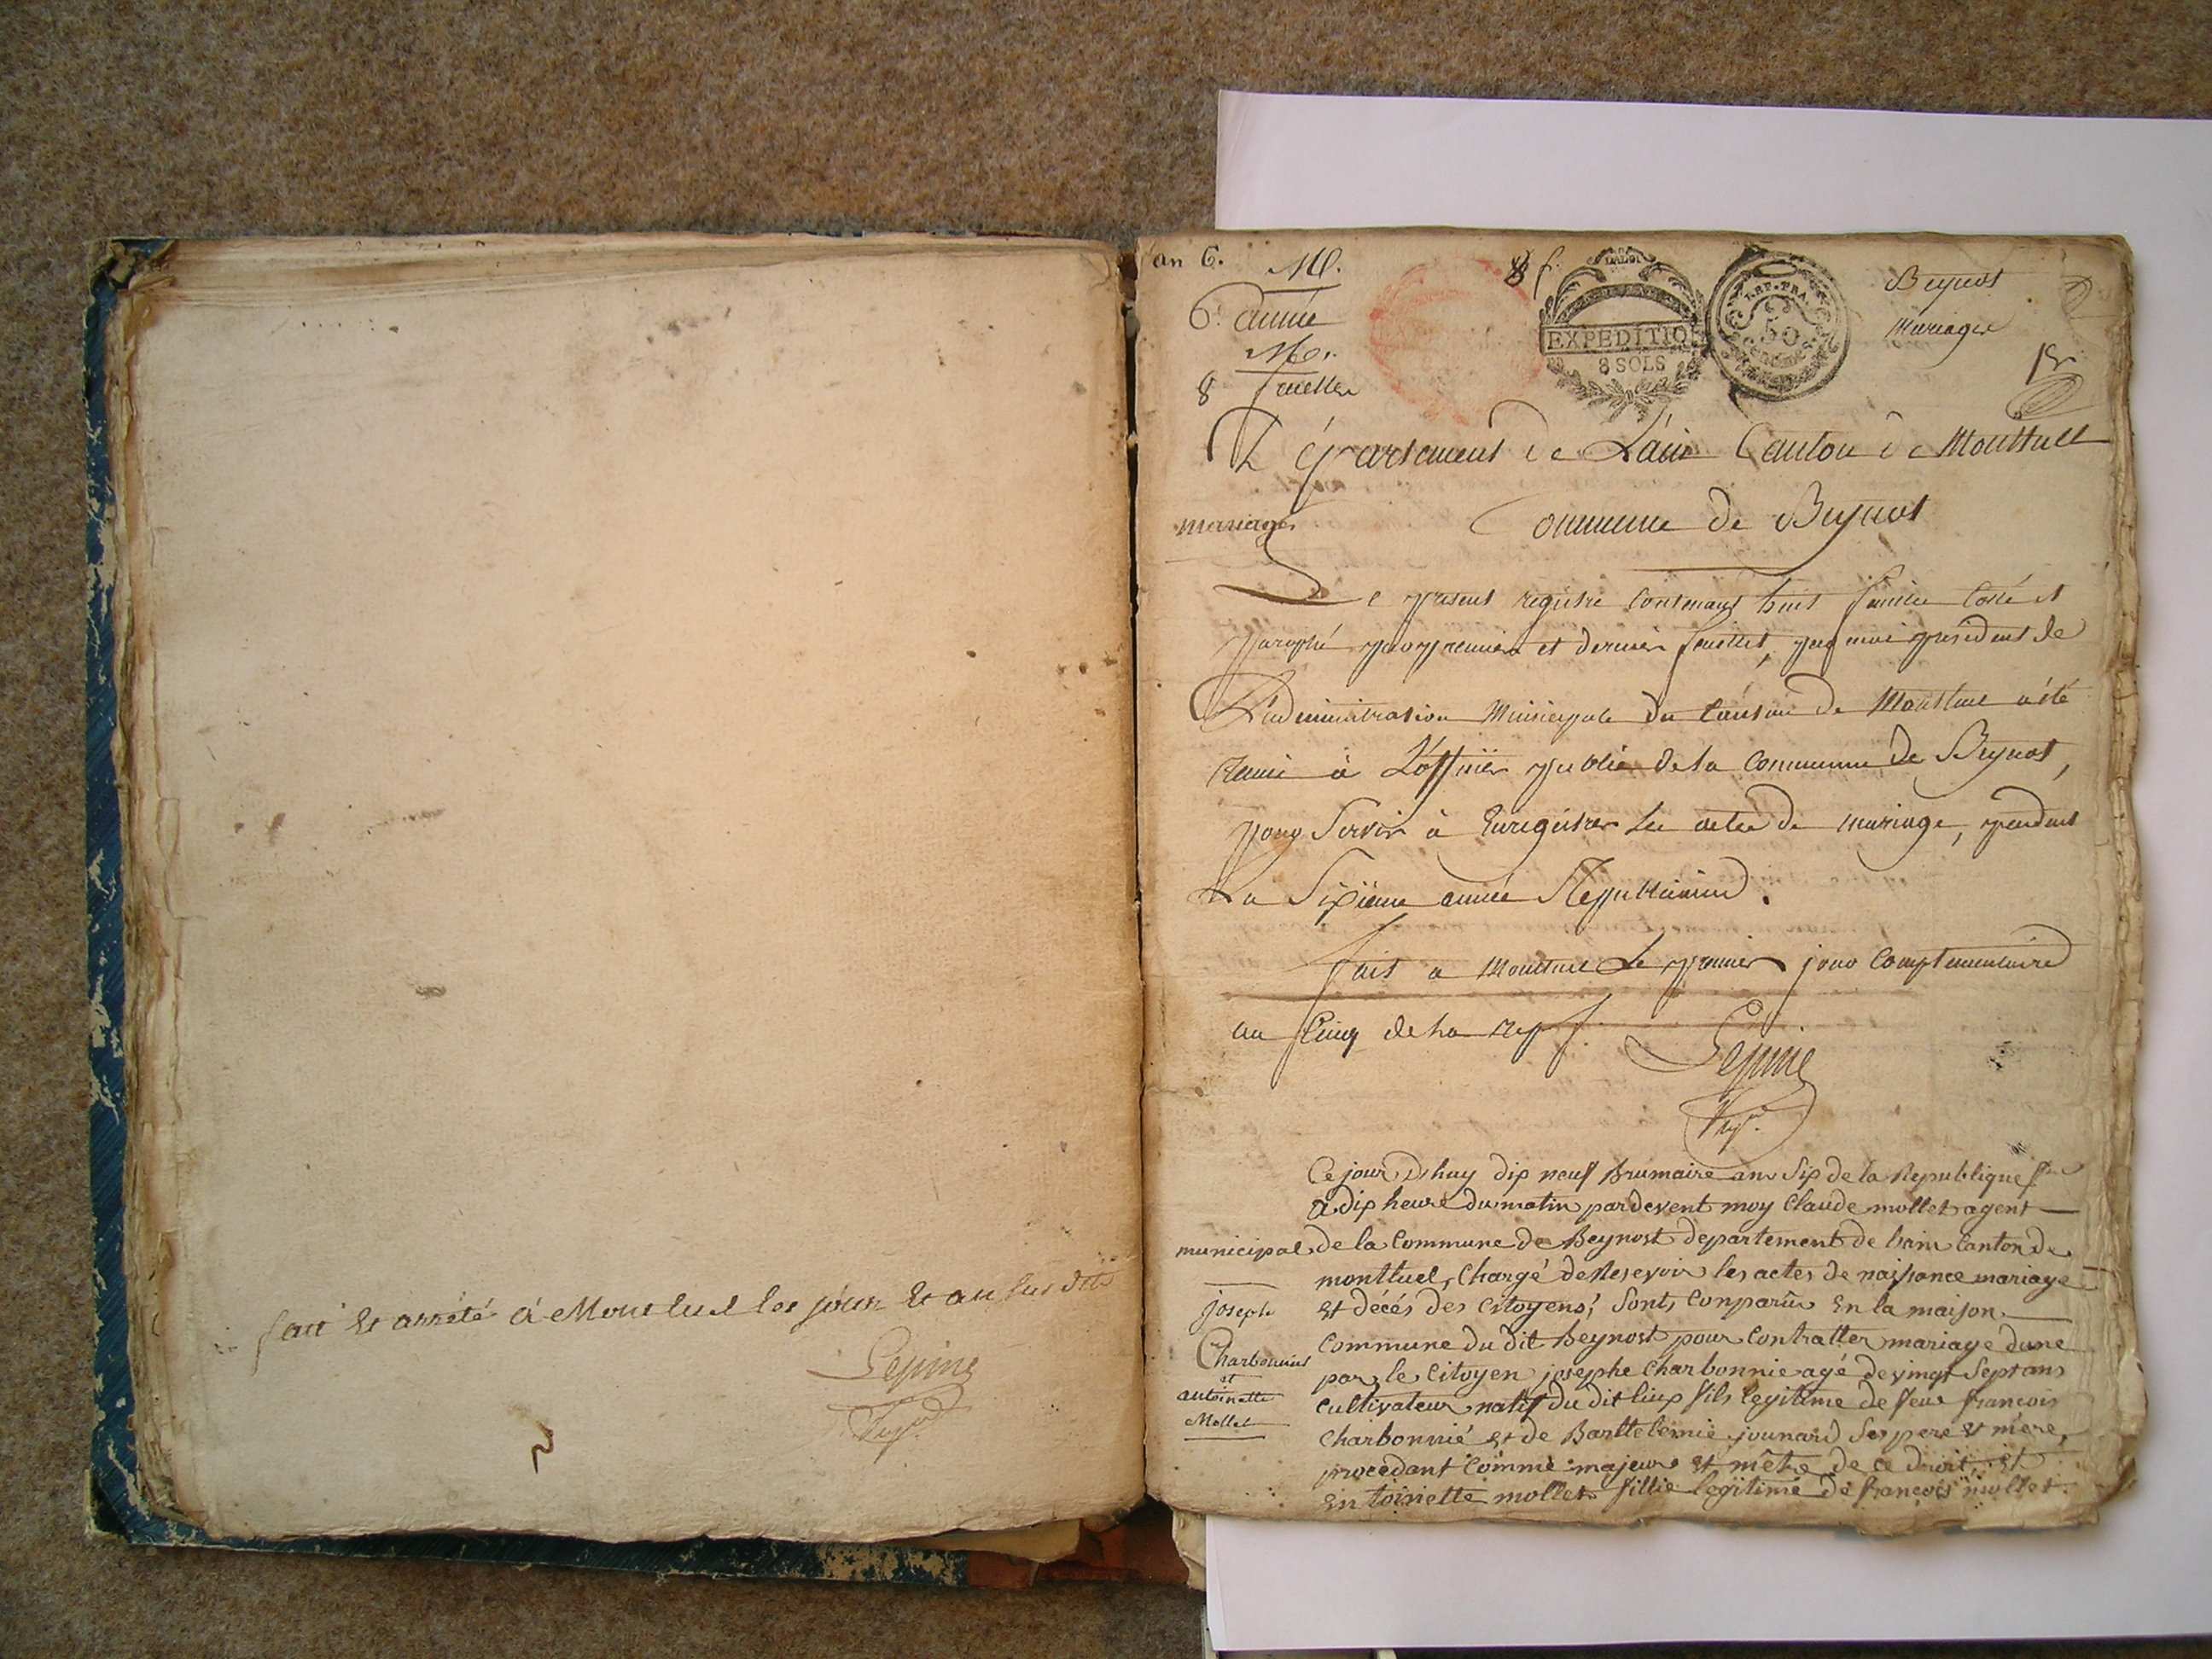 fait et arrêté à Montluel les jour et an susdits
Lepine
an 6.
M.
6e année
M.
8 feuilles
8 f.
LA LOI
EXPEDITIO
8 SOLS
REP. FRA.
50
Beynost
Mariages
Département de L'ain Canton de Montluel
mariages
Commune de Beynost
Le present registre Contenant huit feuilles Cotté et
paraphé par premier et dernier feuillet, par moi president de
L'administration Municipale du Canton de Montluel a été
remis à L'offisier public de la Commune de Beynost,
pour Servir à Enregistrer les actes de mariage, pendant
La Sixieme année Republicaine.
fait a Montluel Le premier jour Complementaire
an Cinq de la rep. f.
Lepine
Ce jour Dhuy dix neuf brumaire an Six de la Republique f.
a dix heure du matin pardevent moy Claude mollet agent
municipal de la Commune de Beynost departement de lain Canton de
montluel, Chargé de Resevoir les actes de naissance mariage
et décés des Citoyens, Sont Conparûs En la maison
Commune du dit Beynost pour Contratter mariage dune
part le Citoyen josephe Charbonnie agé de vingt Sept ans
Cultivateur natif du dit lieux fils legitime de feux françois
Charbonnié et de Barttelemie jounard Ses pere et mere,
procedant Comme majeur et mêtre de ce droit, et
Entoinette mollet fillie legitime de françois mollet
joseph
Charbonnier
et
antoinette
Mollet